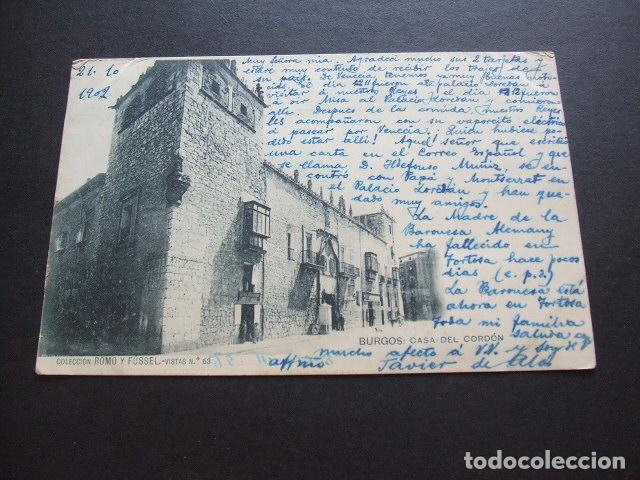 21. 10
1902
Muy Señora mia: Agradecí mucho sus 2 tarjetas y
estaré muy contento de recibir los trajes de
su pais. De Venecia tenemos ya muy buenas noti-
El día 12 fueron al palacio Loredán á
visitar á nuestros Reyes y el día 13 fueron
a oir Misa al Palacio Loredán y comieron
allí. Despues de la comida nuestros Reyes
les acompañaron con su vaporcito eléctrico
á pasear por Venecia. ¡Quién hubiese po-
dido estar allí! Aquel señor que escribió
una carta en el Correo Español y que
se llama D. Ildefonso Muñiz, se en-
contró con Papá y Montserrat en
el Palacio Loredán y han que-
dado muy amigos.
La Madre de la
Baronesa Alemany
ha fallecido en
Tortosa hace pocos
dias (e. p. d.)
La Baronesa está
ahora en Tortosa
Toda mi familia
saluda con
mucho afecto á VV. y soy de V.
affmo Javier de
BURGOS: CASA DEL CORDÓN
COLECCIÓN ROMO Y FÜSSEL.-VISTAS N.° 63
todocoleccion.net